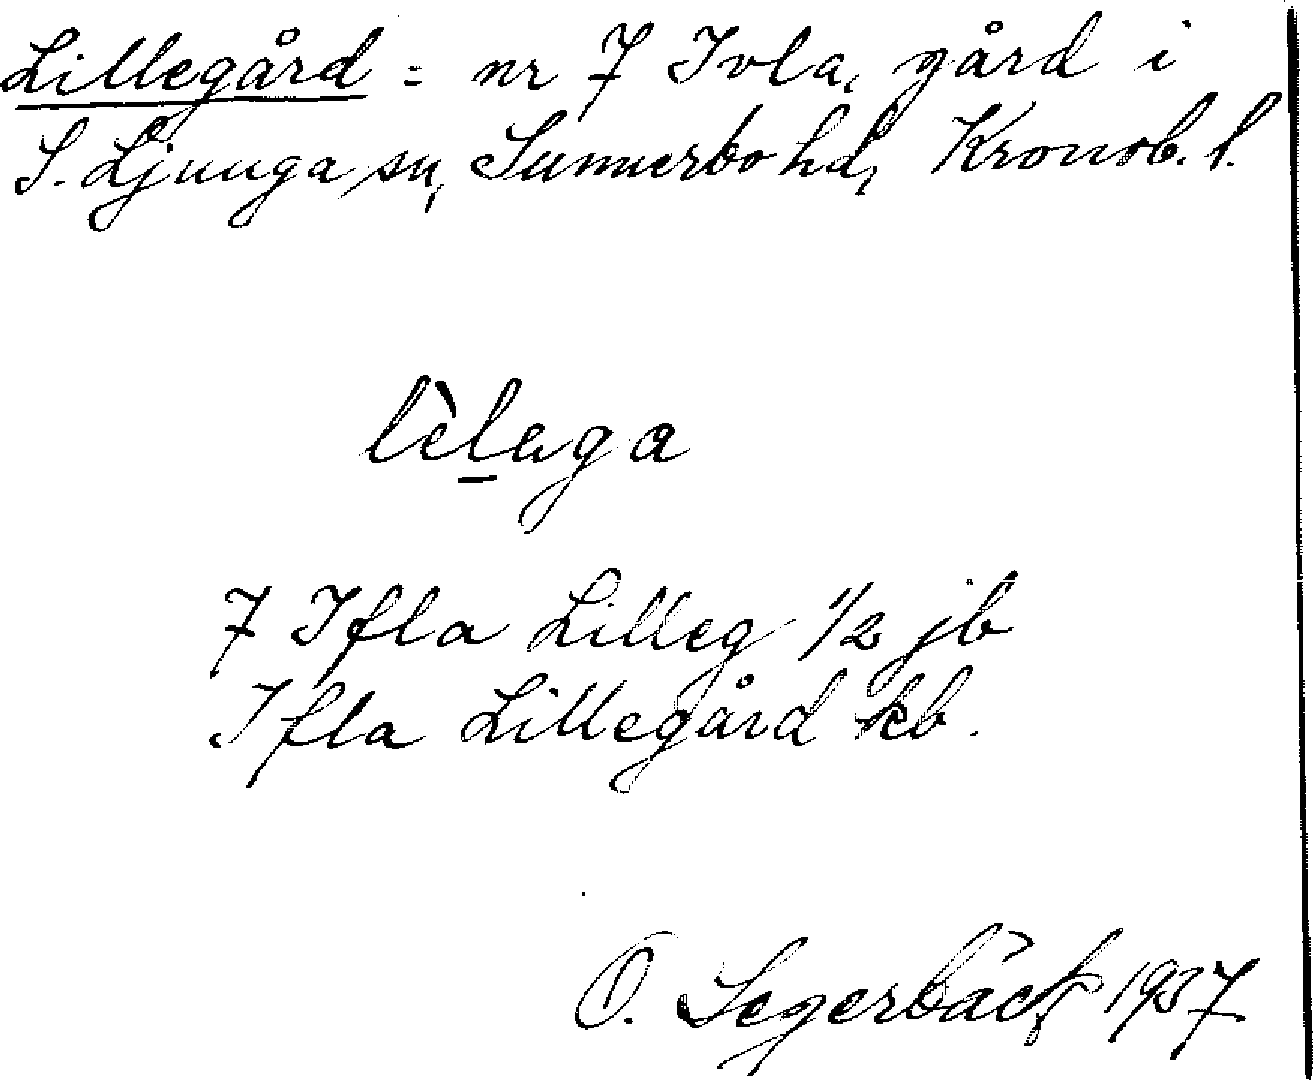 Lillegård = nr 7 Ivla, gård i
S. Ljunga sn, Sunnerbo hd, Kronob. l.
lèlaga
7 Ifla Lilleg 1/2 jb
Ifla Lillegård kb.
O. Segerbäck 1937